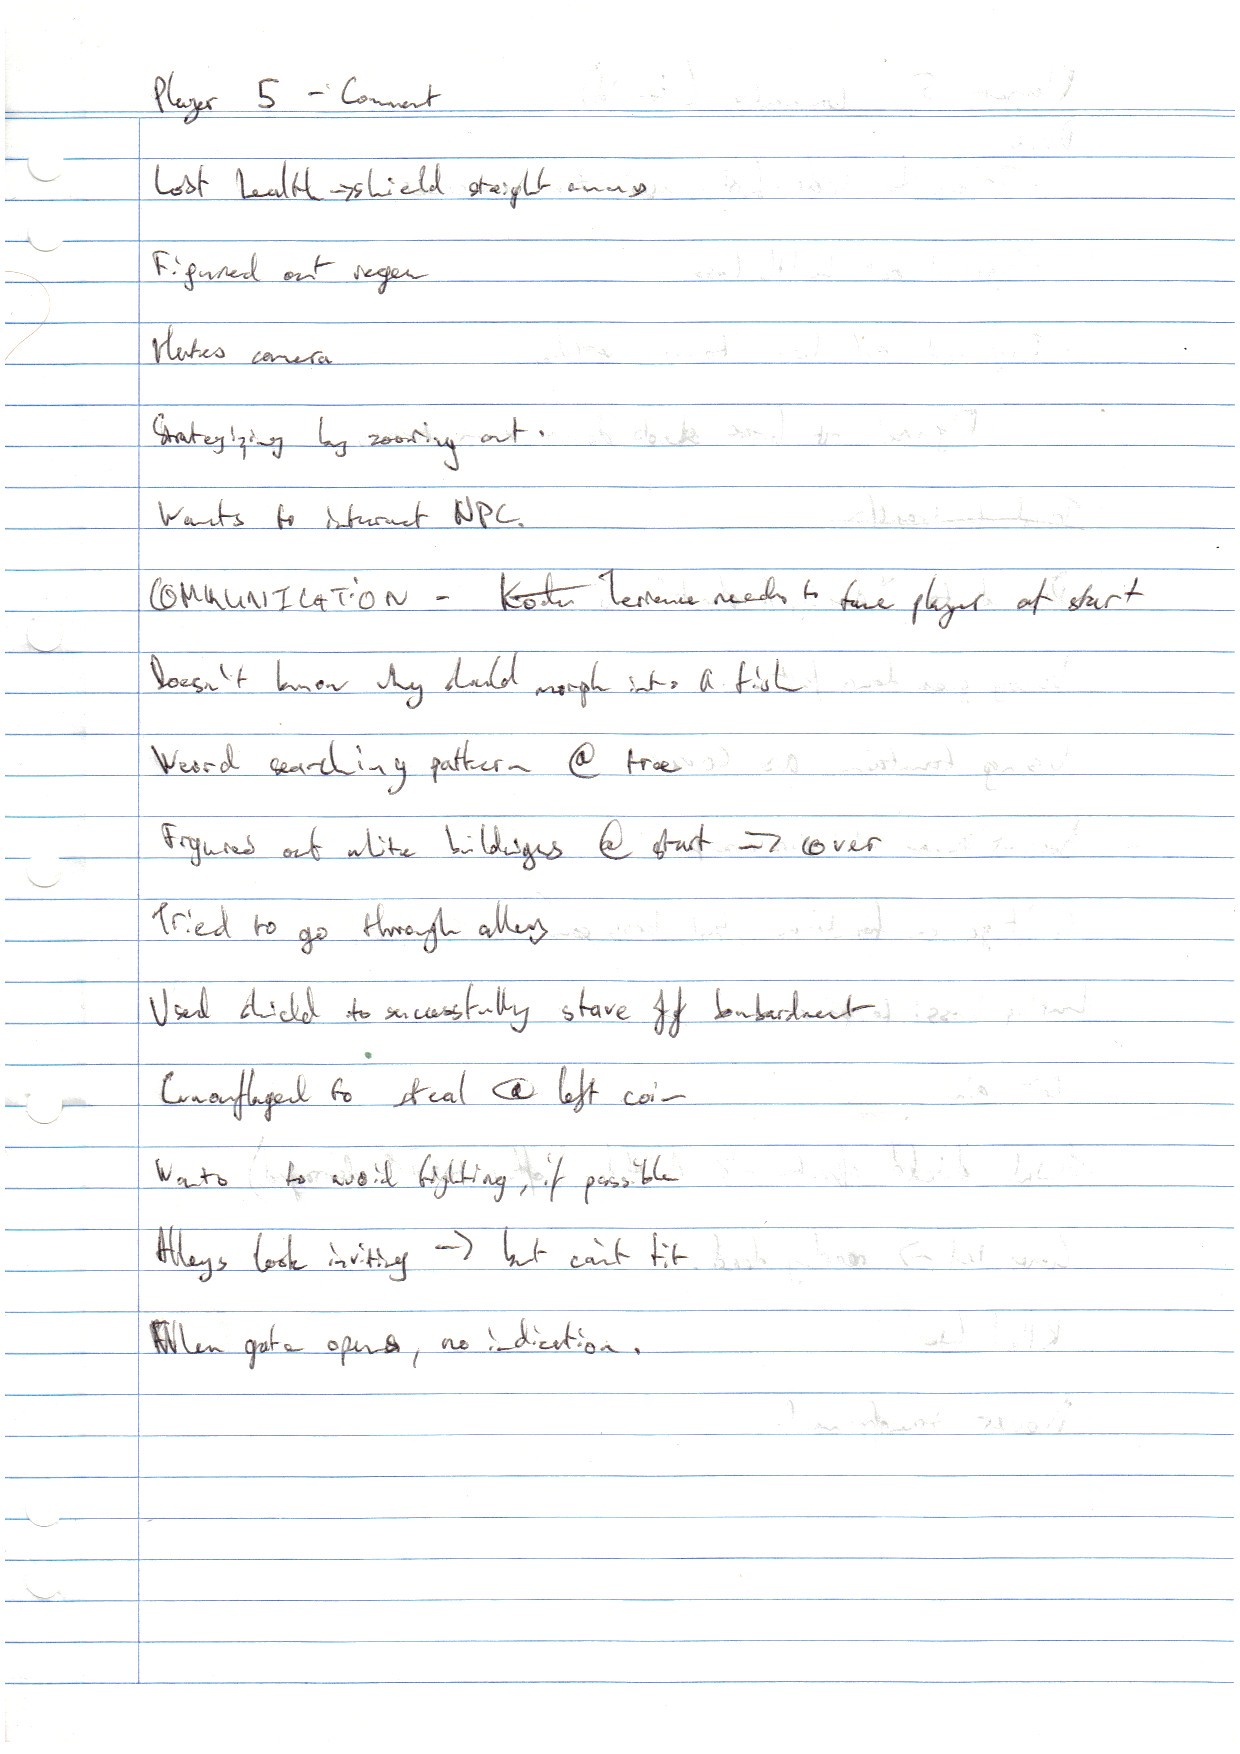 Player 5 - Comment
Lost health → shield straight away
Figured out regen
Hates camera
Strategizing by zooming out.
Wants to interact NPC.
COMMUNICATION - Kodu Terrence needs to face player at start
Doesn't know why should morph into a fish
Weird searching pattern @ tree
Figured out white buildings @ start => cover
Tried to go through alleys
Used shield to successfully stave off bombardment
Camouflaged to steal @ left coin
Wants to avoid fighting, if possible
Alleys look inviting -> but can't fit
When gate opens, no indication.